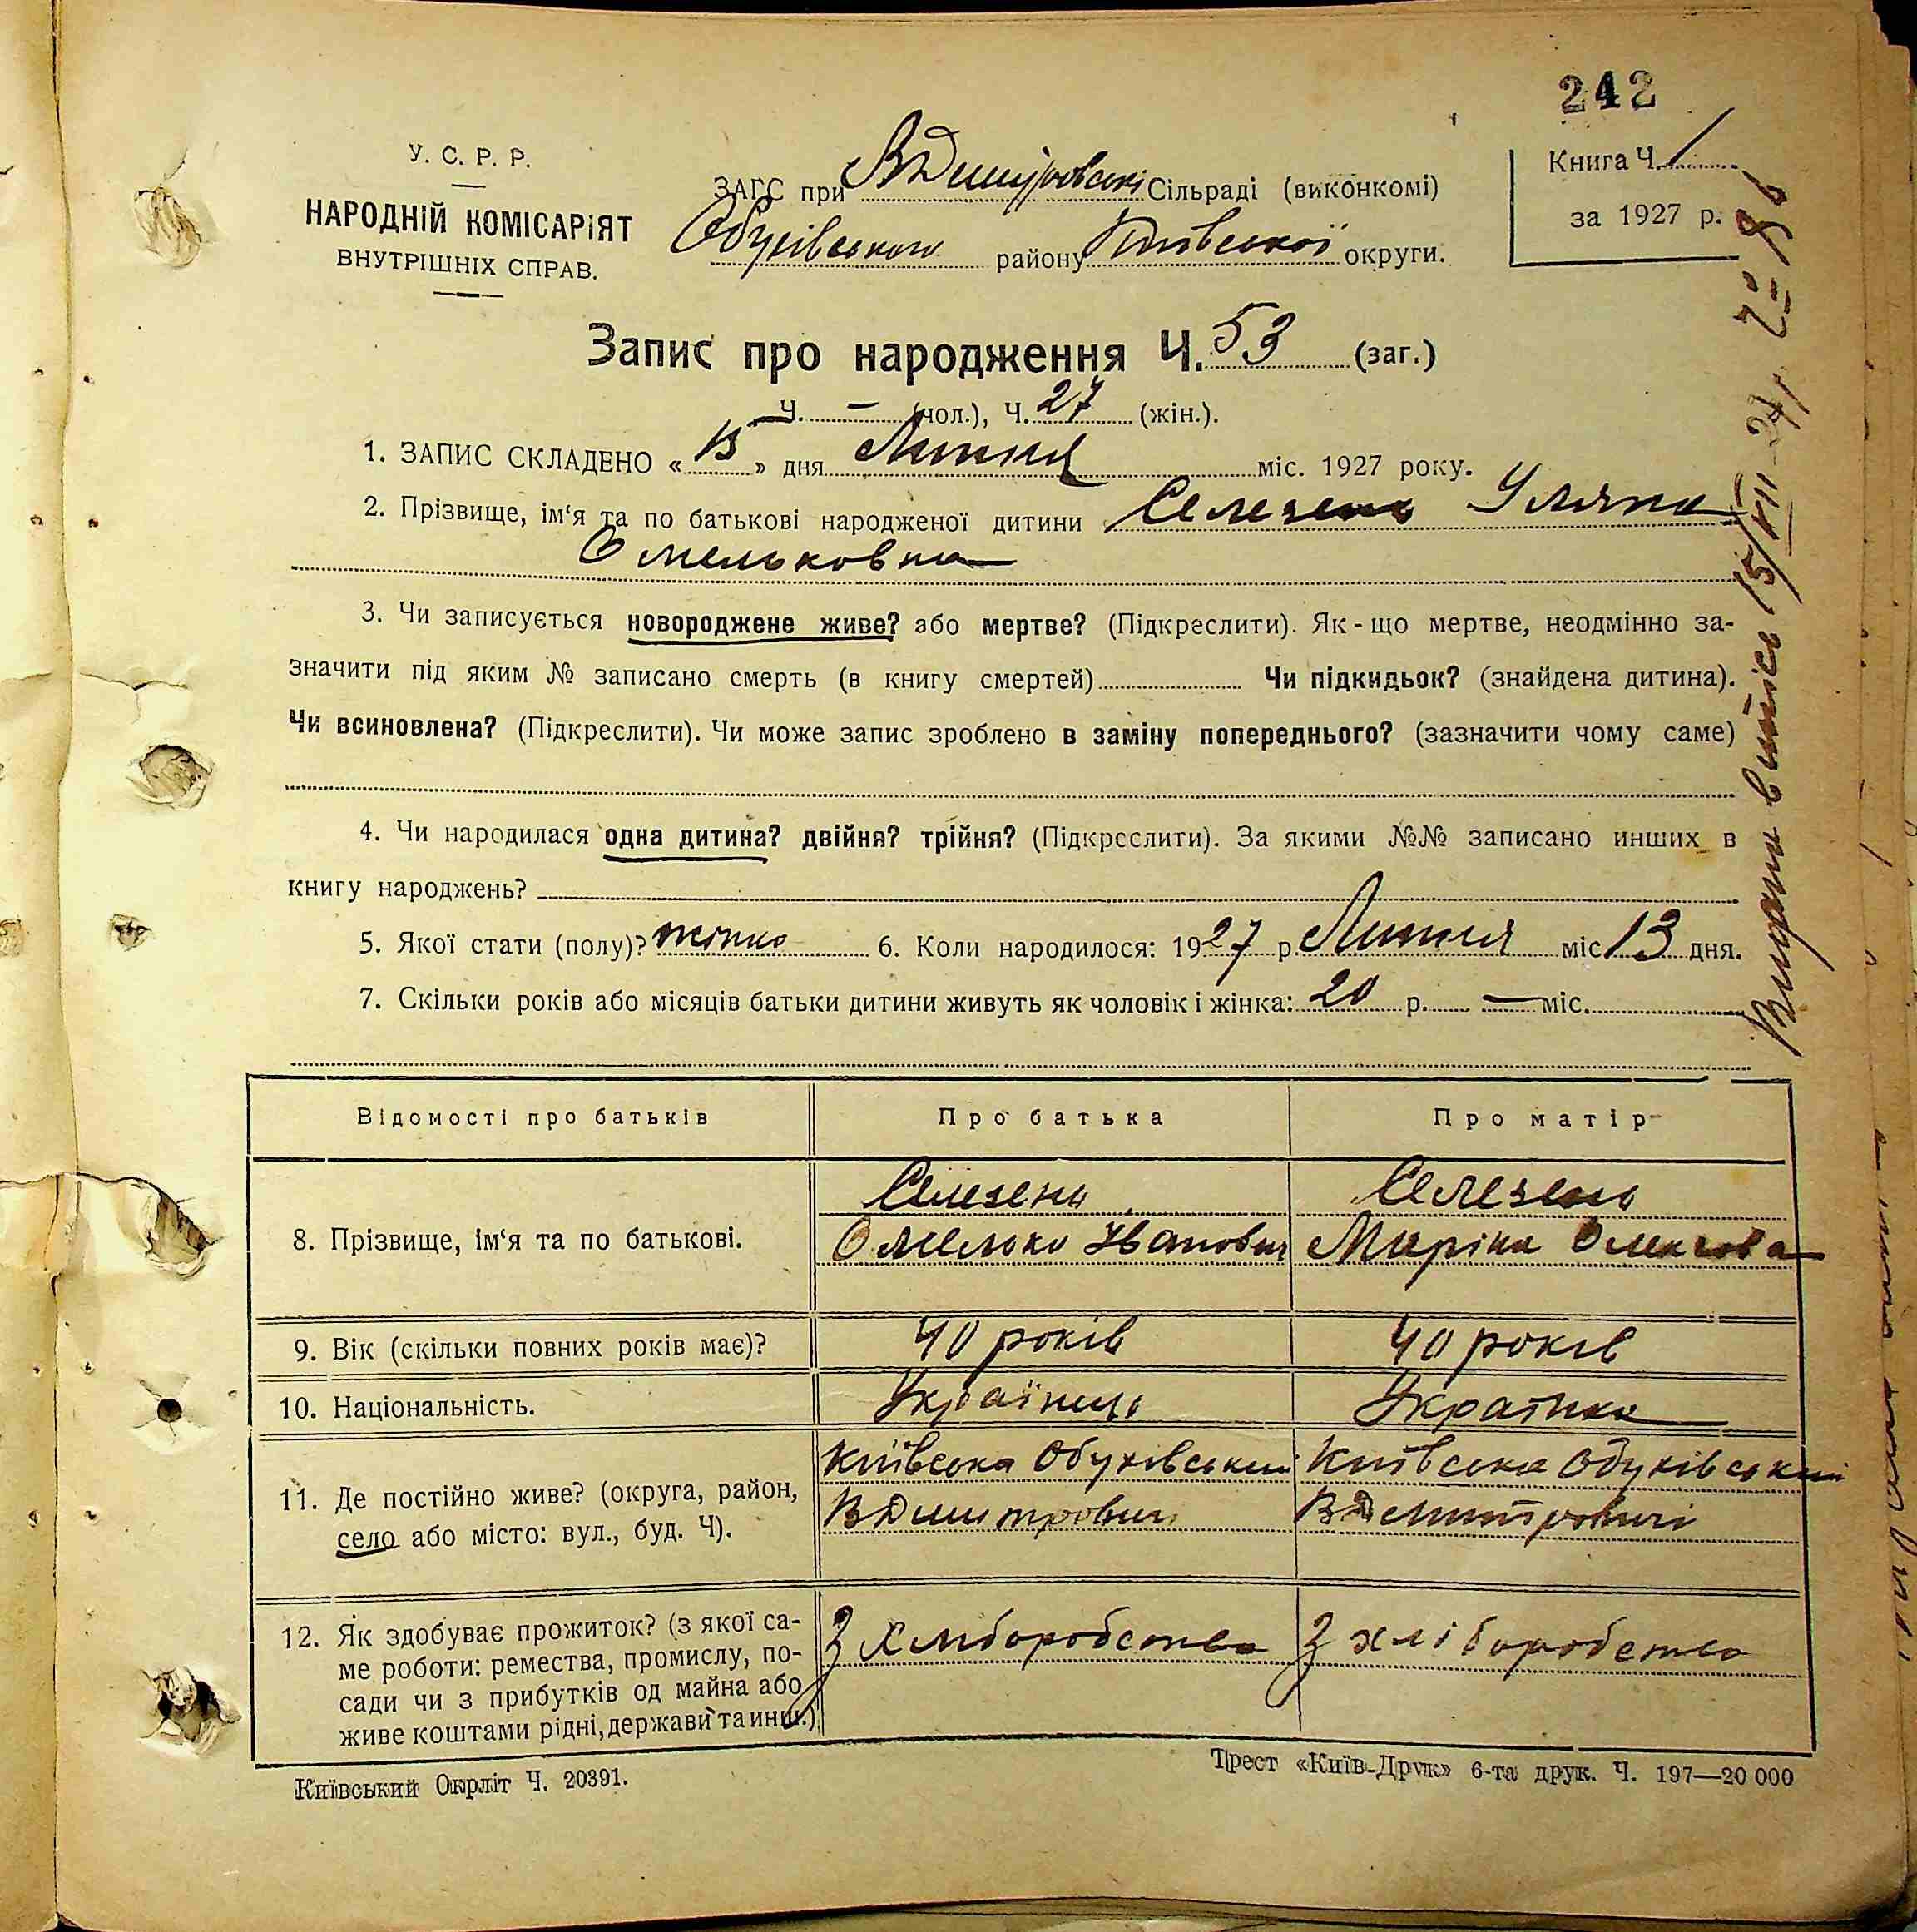 242
У. С. Р. Р.
НАРОДНІЙ КОМІСАРІЯТ
ВНУТРІШНІХ СПРАВ.
ЗАГС при Сільраді (виконкомі)
Обухівського району Київської округи.
Книга Ч. 1
за 1927 р.
Запис про народження Ч. 53 (заг.)
Ч. — (чол.), Ч. 27 (жін.).
1. ЗАПИС СКЛАДЕНО «15» дня Липня міс. 1927 року.
2. Прізвище, ім‘я та по батькові народженої дитини Селезень Уляна
Омельковна
3. Чи записується новороджене живе? або мертве? (Підкреслити). Як-що мертве, неодмінно за-
значити під яким № записано смерть (в книгу смертей) Чи підкидьок? (знайдена дитина).
Чи всиновлена? (Підкреслити). Чи може запис зроблено в заміну попереднього? (зазначити чому саме)
4. Чи народилася одна дитина? двійня? трійня? (Підкреслити). За якими №№ записано инших в
книгу народжень?
5. Якої стати (полу)? 6. Коли народилося: 1927 р. Липня міс 13 дня.
7. Скільки років або місяців батьки дитини живуть як чоловік і жінка: 20 р. — міс.
Відомості про батьків Про батька Про матір
8. Прізвище, ім‘я та по батькові.
Селезень
Омелько Іванович
Селезень
Маріна
9. Вік (скільки повних років має)? 40 років 40 років
10. Національність. Українець Українка
11. Де постійно живе? (округа, район,
село або місто: вул., буд. Ч).
Київська Обухівський
ВДмитровичі
Київська Обухівський
ВДемитровичі
12. Як здобуває прожиток? (з якої са-
ме роботи: ремества, промислу, по-
сади чи з прибутків од майна або
живе коштами рідні, держави та инш.)
З хліборобства
З хліборобства
Київський Окрліт Ч. 20391.
Трест «Київ-Друк» 6-та друк. Ч. 197—20 000
Видана витпісь 15/VII-27